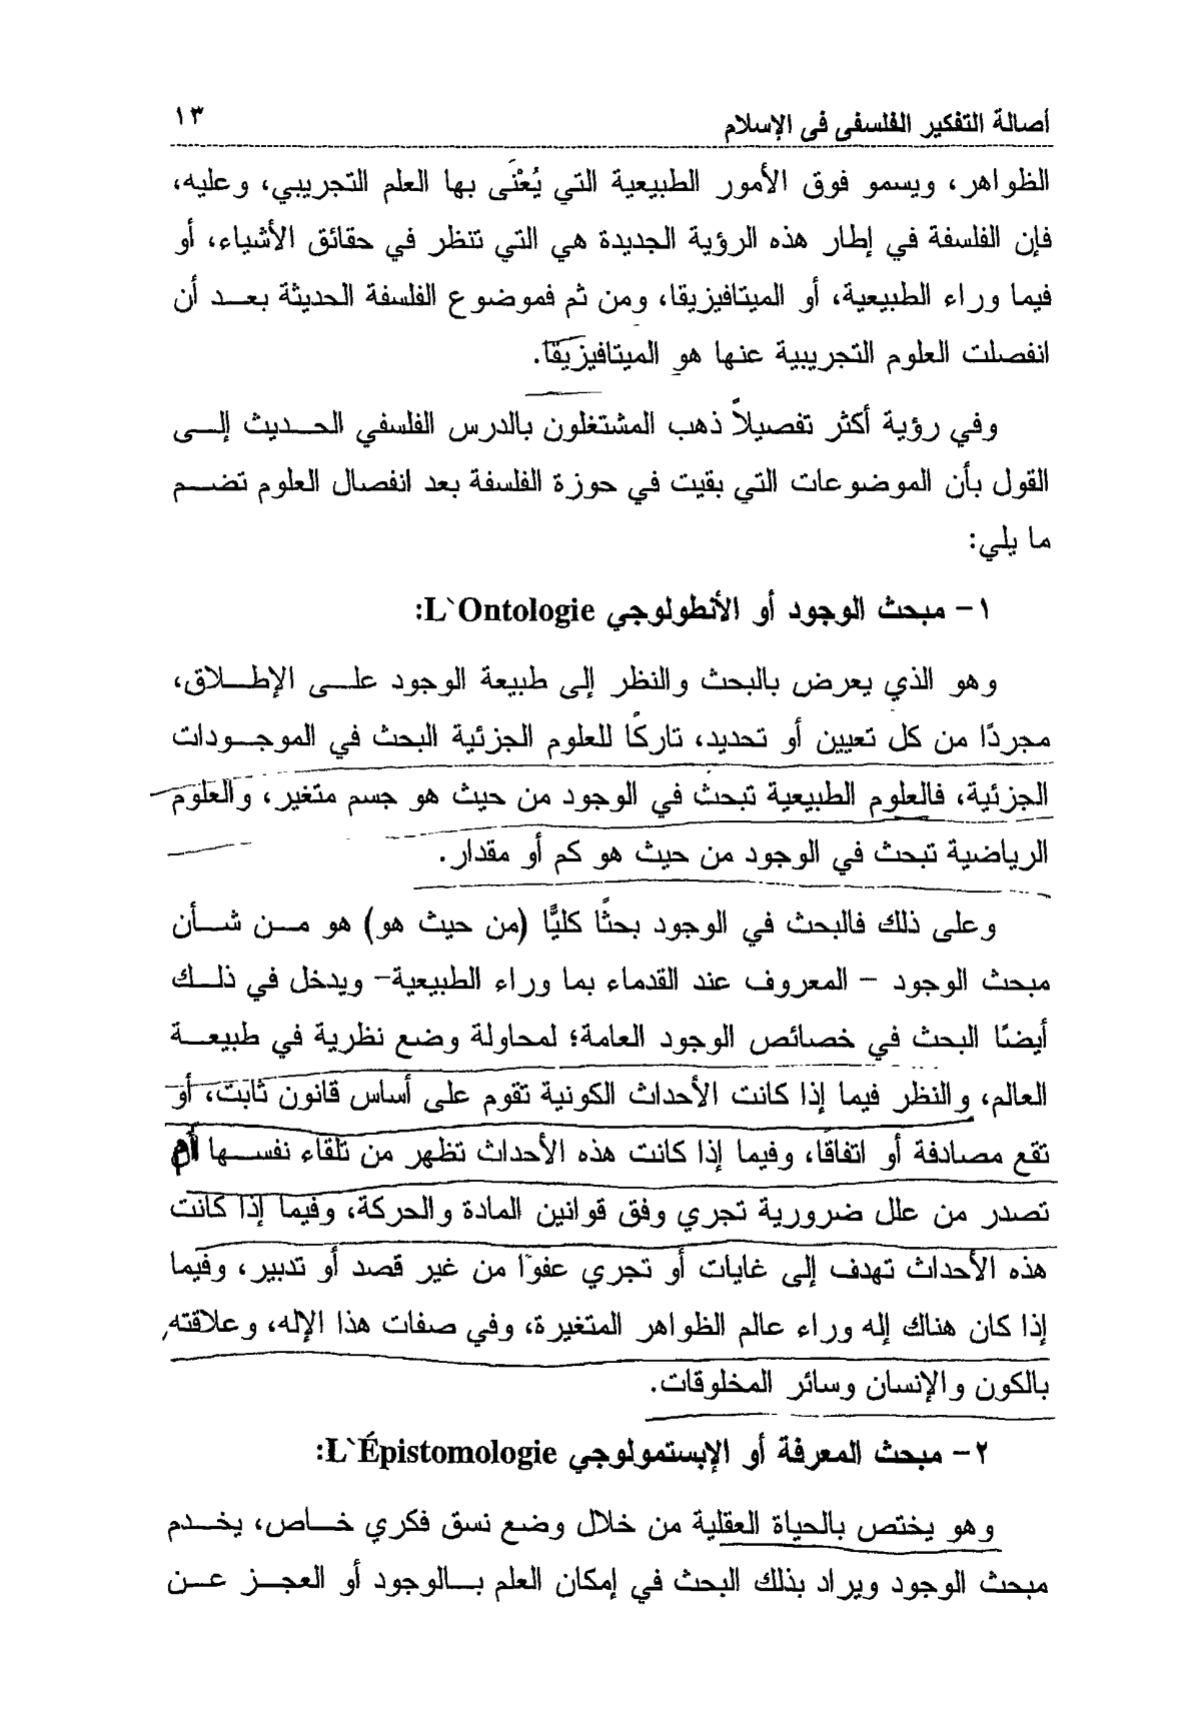 أصالة التفكير الفلسفى فى الإسلام ١٣
الظواهر، ويسمو فوق الأمور الطبيعية التي يُعْنَى بها العلم التجريبي، وعليه،
فإن الفلسفة في إطار هذه الرؤية الجديدة هي التي تنظر في حقائق الأشياء، أو
فيما وراء الطبيعية، أو الميتافيزيقا، ومن ثم فموضوع الفلسفة الحديثة بعد أن
انفصلت العلوم التجريبية عنها هو الميتافيزيقا.
وفي رؤية أكثر تفصيلاً ذهب المشتغلون بالدرس الفلسفي الحديث إلى
القول بأن الموضوعات التي بقيت في حوزة الفلسفة بعد انفصال العلوم تضم
ما يلي:
١- مبحث الوجود أو الأنطولوجي L`Ontologie:
وهو الذي يعرض بالبحث والنظر إلى طبيعة الوجود على الإطلاق،
مجردًا من كل تعيين أو تحديد، تاركًا للعلوم الجزئية البحث في الموجودات
الجزئية، فالعلوم الطبيعية تبحث في الوجود من حيث هو جسم متغير، والعلوم
الرياضية تبحث في الوجود من حيث هو كم أو مقدار.
وعلى ذلك فالبحث في الوجود بحثًا كليًّا (من حيث هو) هو من شأن
مبحث الوجود – المعروف عند القدماء بما وراء الطبيعية– ويدخل في ذلك
أيضًا البحث في خصائص الوجود العامة؛ لمحاولة وضع نظرية في طبيعة
العالم، والنظر فيما إذا كانت الأحداث الكونية تقوم على أساس قانون ثابت، أو
تقع مصادفة أو اتفاقًا، وفيما إذا كانت هذه الأحداث تظهر من تلقاء نفسها أم
تصدر من علل ضرورية تجري وفق قوانين المادة والحركة، وفيما إذا كانت
هذه الأحداث تهدف إلى غايات أو تجري عفوًا من غير قصد أو تدبير، وفيما
إذا كان هناك إله وراء عالم الظواهر المتغيرة، وفي صفات هذا الإله، وعلاقته
بالكون والإنسان وسائر المخلوقات.
٢- مبحث المعرفة أو الإبستمولوجي L`Épistomologie:
وهو يختص بالحياة العقلية من خلال وضع نسق فكري خاص، يخدم
مبحث الوجود ويراد بذلك البحث في إمكان العلم بالوجود أو العجز عن